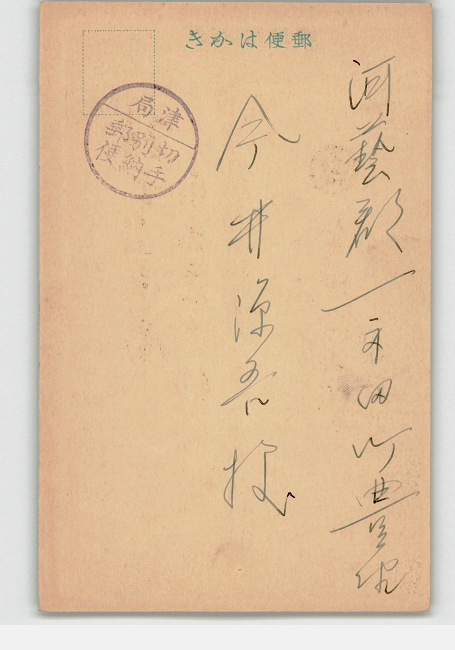 郵便はかき
河藝郡一身田町豊
今井源吾様
津局
切手
別納
郵便